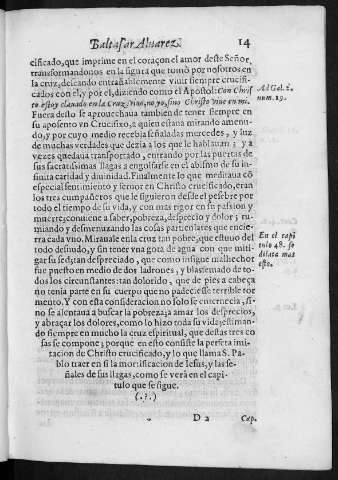 Baltasar Alvarez. 14
cificado, que imprime en el coraçon el amor deste Señor,
transformandonos en la figura que tomò por nosotros en
la cruz, deseando entrañablemente viuir siempre crucifi-
cados con el, y por el, diziendo con el Apostol: Con Chris
to estoy clauado en la Cruz, viuo, no yo, sino Christo viue en mi.
Fuera desto se aprouechaua tambien de tener siempre en
su aposento vn Crucifixo, a quien estaua mirando amenu-
do, y por cuyo medio recebia señaladas mercedes, y luz
de muchas verdades que dezia a los que le hablauan; y a
vezes quedaua transportado, entrando por las puertas de
sus sacratissimas llagas a engolfarse en el abismo de su in-
finita caridad y diuinidad. Finalmente lo que meditaua cõ
especial sentimiento y feruor en Christo crucificado, eran
los tres cumpañeros que le siguieron desde el pesebre por
todo el tiempo de su vida, y con mas rigor en su passion y
muerte; conuiene a saber, pobreza, desprecio y dolor; ru-
miando y desmenuzando las cosas particulares que encie-
rra cada vno. Mirauale en la cruz tan pobre, que estuuo del
todo desnudo, y sin tener vna gota de agua con que miti-
gar su sed; tan despreciado, que como insigne malhechor
fue puesto en medio de dos ladrones, y blasfemado de to-
dos los circunstantes: tan dolorido, que de pies a cabeça
no tenia parte en su cuerpo que no padeciesse terrible tor
mento. Y con esta consideracion no solo se enternecia, si-
no se alentaua a buscar la pobreza; a amar los desprecios,
y abraçar los dolores, como lo hizo toda su vida; estiman-
do siempre en mucho la cruz espiritual, que destas tres co
sas se compone; porque en esto consiste la perfeta imi-
tacion de Christo crucificado, y lo que llama S. Pa-
blo traer en si la mortificacion de Iesus, y las se-
ñales de sus llagas, como se verà en el capi-
tulo que se sigue.
(.?.)
Ad Gal. 2.
num. 19.
En el capi
tulo 48. se
dilata mas
esto.
D 2 Cap.